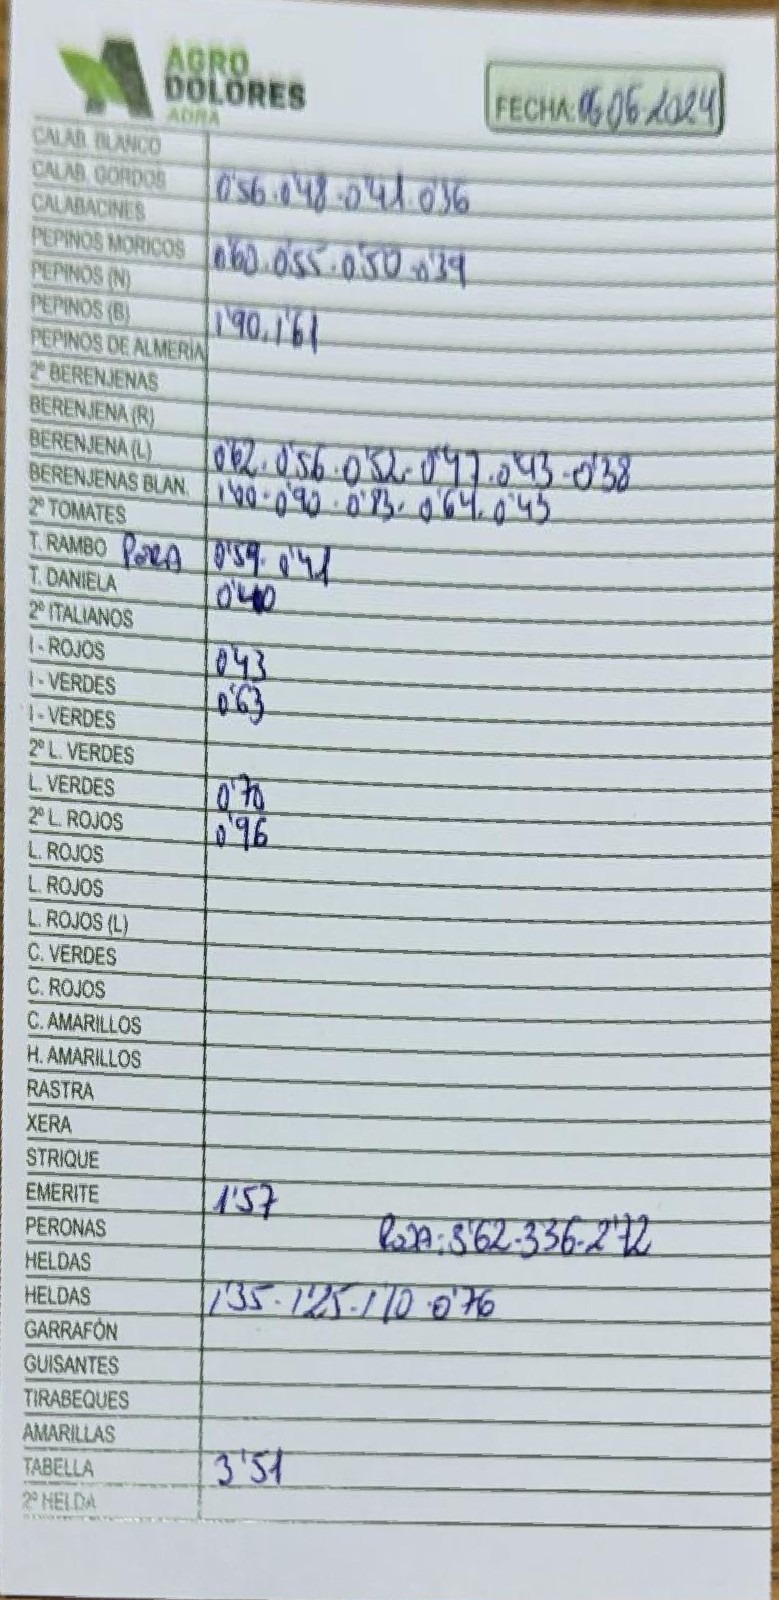 AGRO
DOLORES
ADRA
FECHA: 06 06 2024
CALAB. BLANCO
CALAB. GORDOS
CALABACINES 0'56.0'48.0'41.0'36
PEPINOS MORICOS
PEPINOS (N) 0'60.0'55.0'50.0'39
PEPINOS (B)
PEPINOS DE ALMERÍA 1'90.1'61
2º BERENJENAS
BERENJENA (R)
BERENJENA (L)
BERENJENAS BLAN. 0'62.0'56.0'52.0'47.0'43-0'38
2º TOMATES 1'00.0'90.0'83.0'64.0'45
T. RAMBO ROSA 0'59.0'41
T. DANIELA 0'40
2º ITALIANOS
I - ROJOS 0'43
I - VERDES 0'63
I - VERDES
2º L. VERDES
L. VERDES 0'70
2º L. ROJOS 0'96
L. ROJOS
L. ROJOS
L. ROJOS (L)
C. VERDES
C. ROJOS
C. AMARILLOS
H. AMARILLOS
RASTRA
XERA
STRIQUE
EMERITE 1'57
PERONAS ROJA: 3'62-3'36-2'72
HELDAS
HELDAS 1'35.1'25.1'10.0'76
GARRAFÓN
GUISANTES
TIRABEQUES
AMARILLAS
TABELLA 3'51
2º HELDA